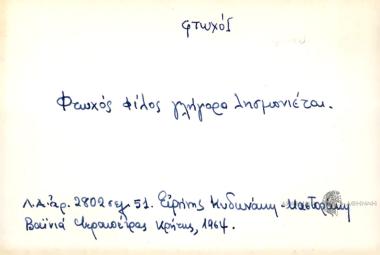 φτωχός
Φτωχός φίλος γλήγορα λησμονιέται.
Λ.Α. αρ. 2802 σελ 51. Ειρήνης Κυδωνάκη-Μαστοράκη
Βαϊνιά Ιεραπέτρας Κρήτης, 1964.